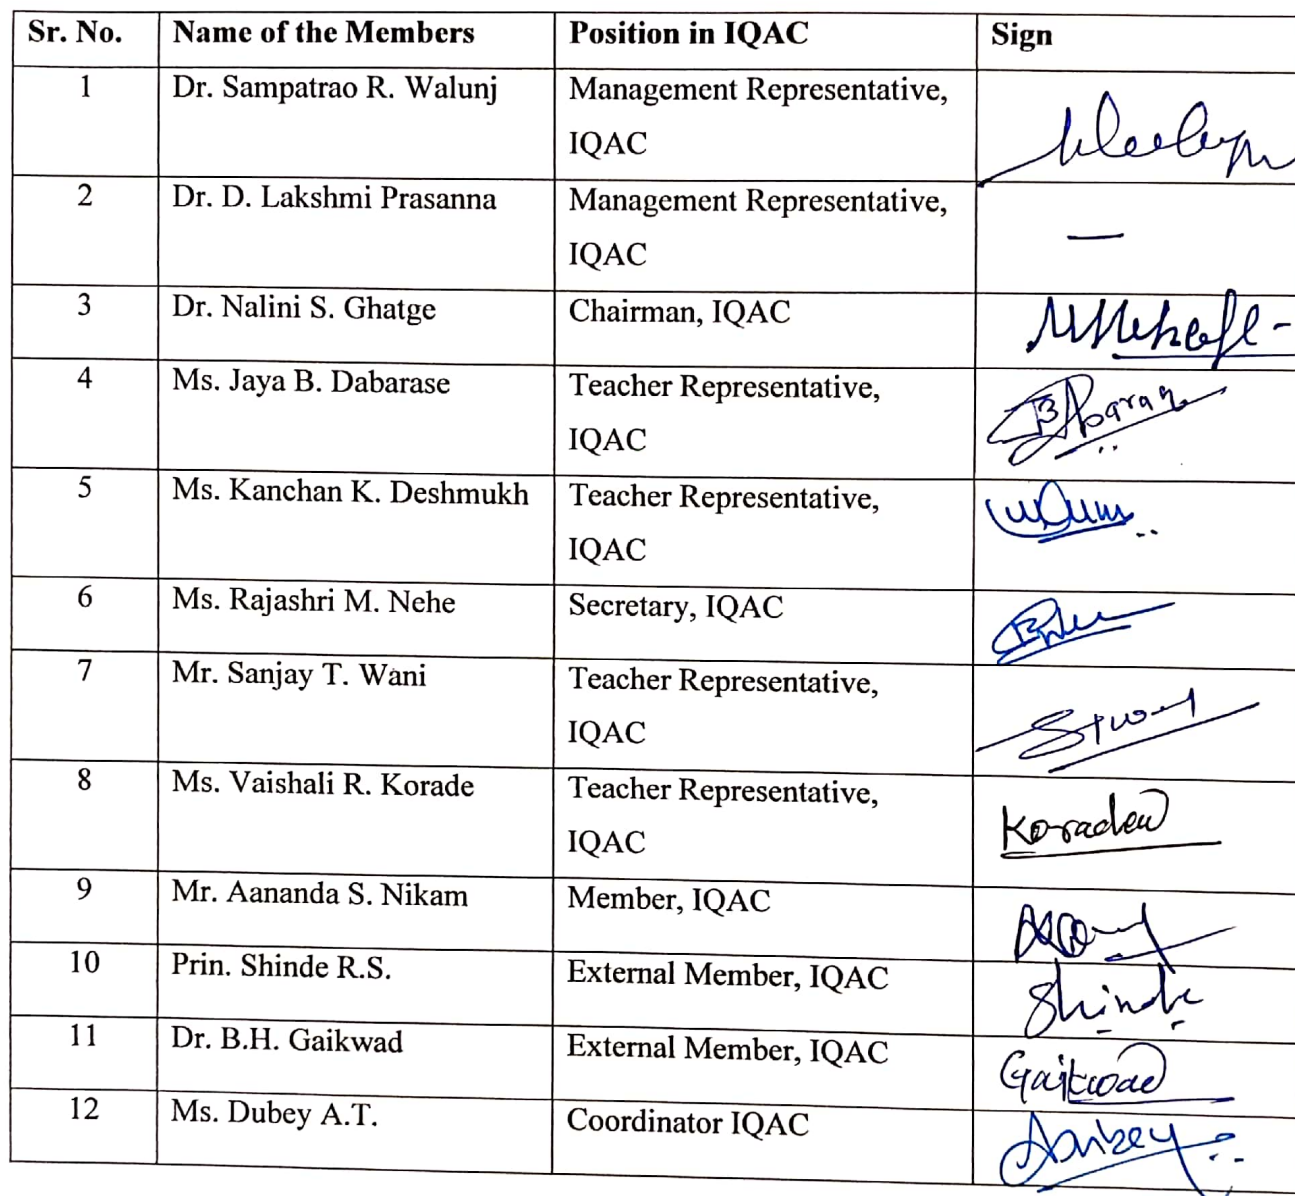 Sr. No. Name of the Members Position in IQAC Sign
1 Dr. Sampatrao R. Walunj Management Representative,
IQAC
2 Dr. D. Lakshmi Prasanna Management Representative,
IQAC —
3 Dr. Nalini S. Ghatge Chairman, IQAC
4 Ms. Jaya B. Dabarase Teacher Representative,
IQAC
5 Ms. Kanchan K. Deshmukh Teacher Representative,
IQAC
6 Ms. Rajashri M. Nehe Secretary, IQAC
7 Mr. Sanjay T. Wani Teacher Representative,
IQAC
8 Ms. Vaishali R. Korade Teacher Representative,
IQAC
9 Mr. Aananda S. Nikam Member, IQAC
10 Prin. Shinde R.S. External Member, IQAC Shinde
11 Dr. B.H. Gaikwad External Member, IQAC Gaikwad
12 Ms. Dubey A.T. Coordinator IQAC